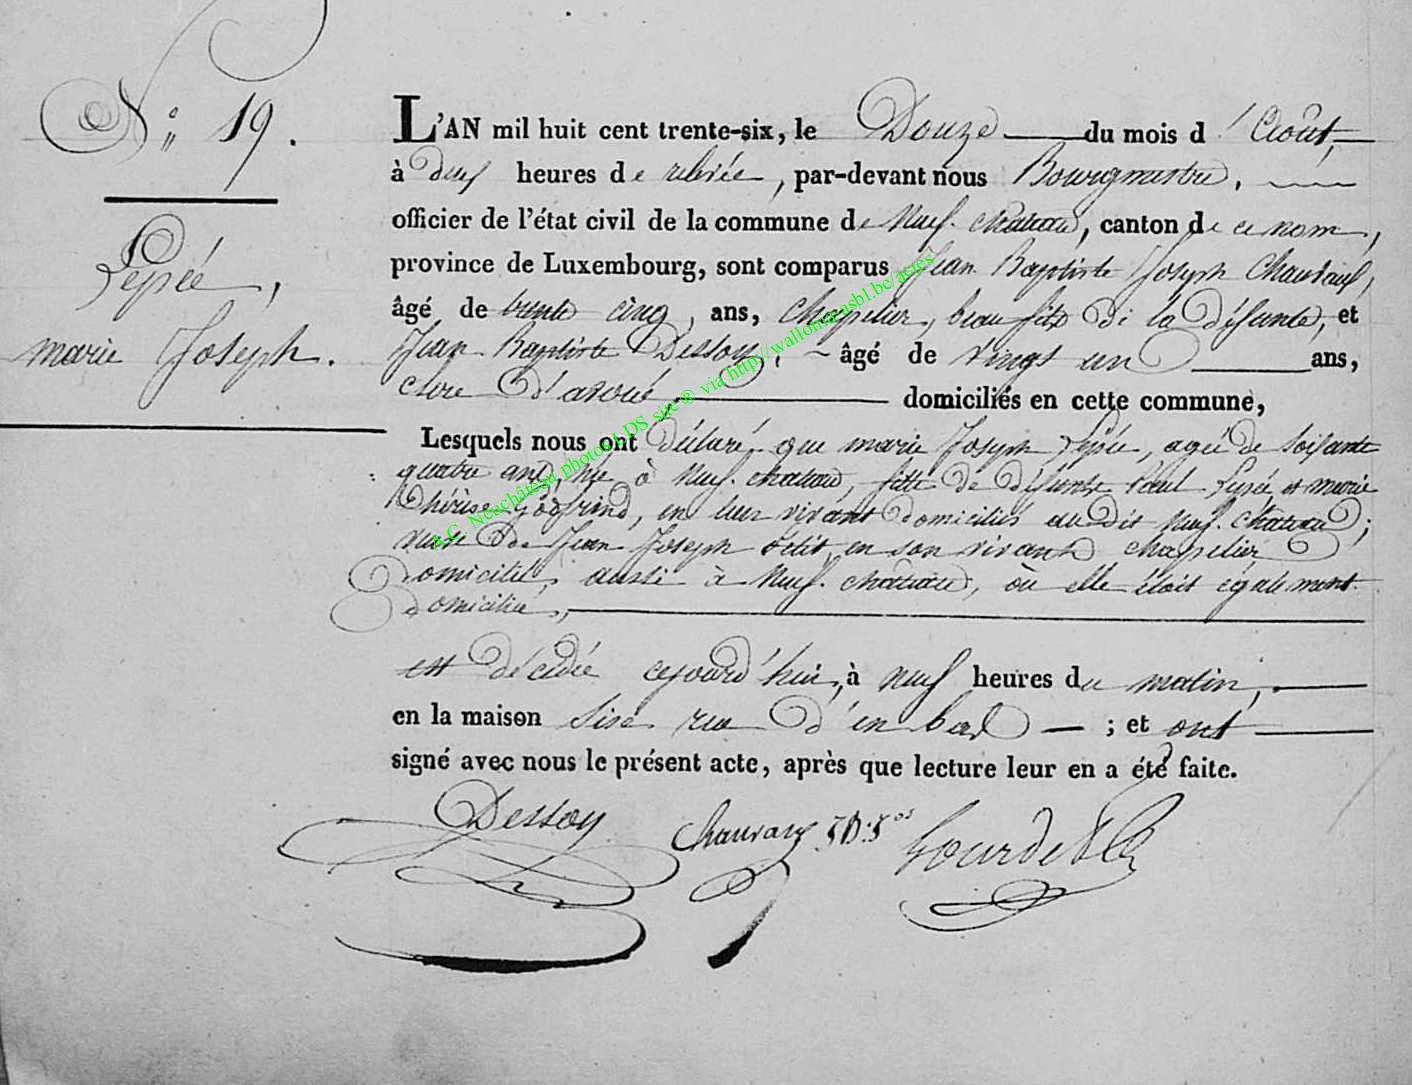 N° 19.
Lepée,
marie Joseph.
L'AN mil huit cent trente-six, le Douze du mois d'Août,
à deux heures de relevée, par-devant nous Bourgmestre,
officier de l'état civil de la commune de Neuf-chateau, canton de ce nom,
province de Luxembourg, sont comparus Jean Baptiste Joseph
âgé de trente cinq ans, chapelier, beau fils de la défunte, et
Jean Baptiste Dessoy, âgé de vingt un ans,
clerc d'avoué, domiciliés en cette commune,
Lesquels nous ont déclaré que marie Joseph Lepée, agée de soixante
quatre ans, née à Neuf-chateau, fille de défunts Paul Lepée et marie
Thérèse, en leur vivant domiciliés audit Neuf-chateau;
veuve de Jean Joseph en son vivant chapelier
domicilié aussi à Neuf-chateau, où elle étoit également
domiciliée,
est décédée cejourd'hui, à neuf heures du matin,
en la maison sise rue d'en bas ; et ont
signé avec nous le présent acte, après que lecture leur en a été faite.
Dessoy
A.C. Neufchâteau photos LDS site ® via http://wallonica.asbl.be/actes